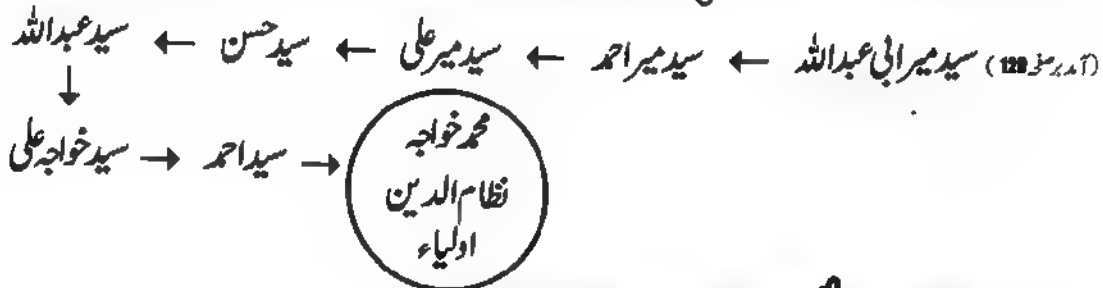 (آمد بر صفحہ 129) سید میر ابی عبداللہ ← سید میر احمد ← سید میر علی ← سید حسن ← سید عبداللہ
↓
سید خواجہ علی → سید احمد →
محمد خواجہ
نظام الدین
اولیاء